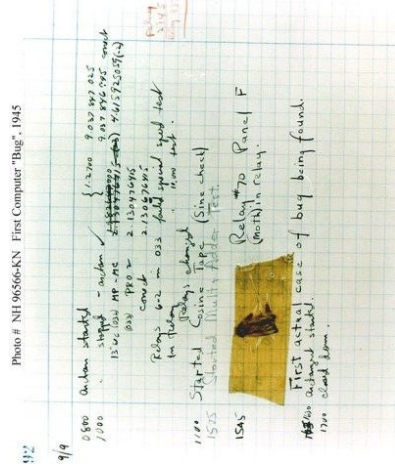 Photo # NH 96566-KN First Computer "Bug", 1945
92
9/9
0800 antan started
1000 " stopped - antan ✓ { 1.2700 9.037 847 025
9.037 846 995 correct
13" uc (032) MP - MC 4.615925059(-2)
(033) PRO 2 2.130476415
correct 2.130676415
Relays 6-2 in 033 failed special speed test
in relay " 11.000 test.
Relays changed
1100 Started Cosine Tape (Sine check)
1525 Started Multi Adder Test.
1545 Relay #70 Panel F
(Moth) in relay.
First actual case of bug being found.
1630 antangent started.
1700 closed down.